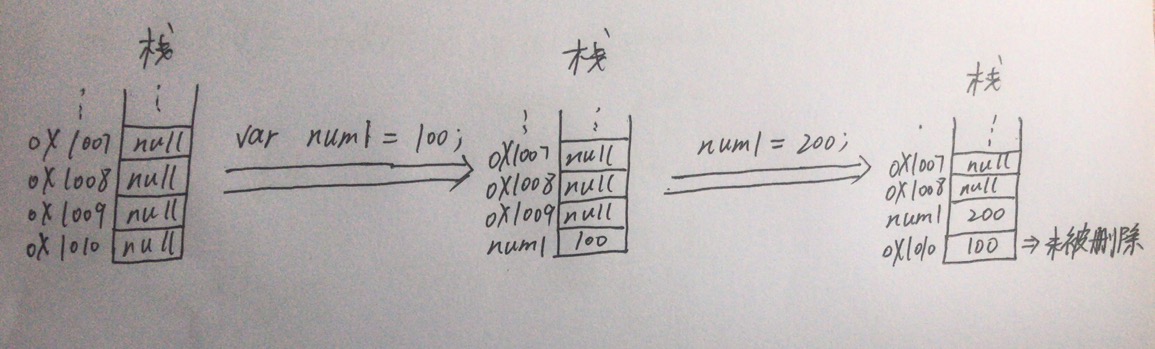 栈
0X1007 null
0X1008 null
0X1009 null
0X1010 null
var num1 = 100;
栈
0X1007 null
0X1008 null
0X1009 null
num1 100
num1 = 200;
栈
0X1007 null
0X1008 null
num1 200
0X1010 100 ⇒ 未被删除